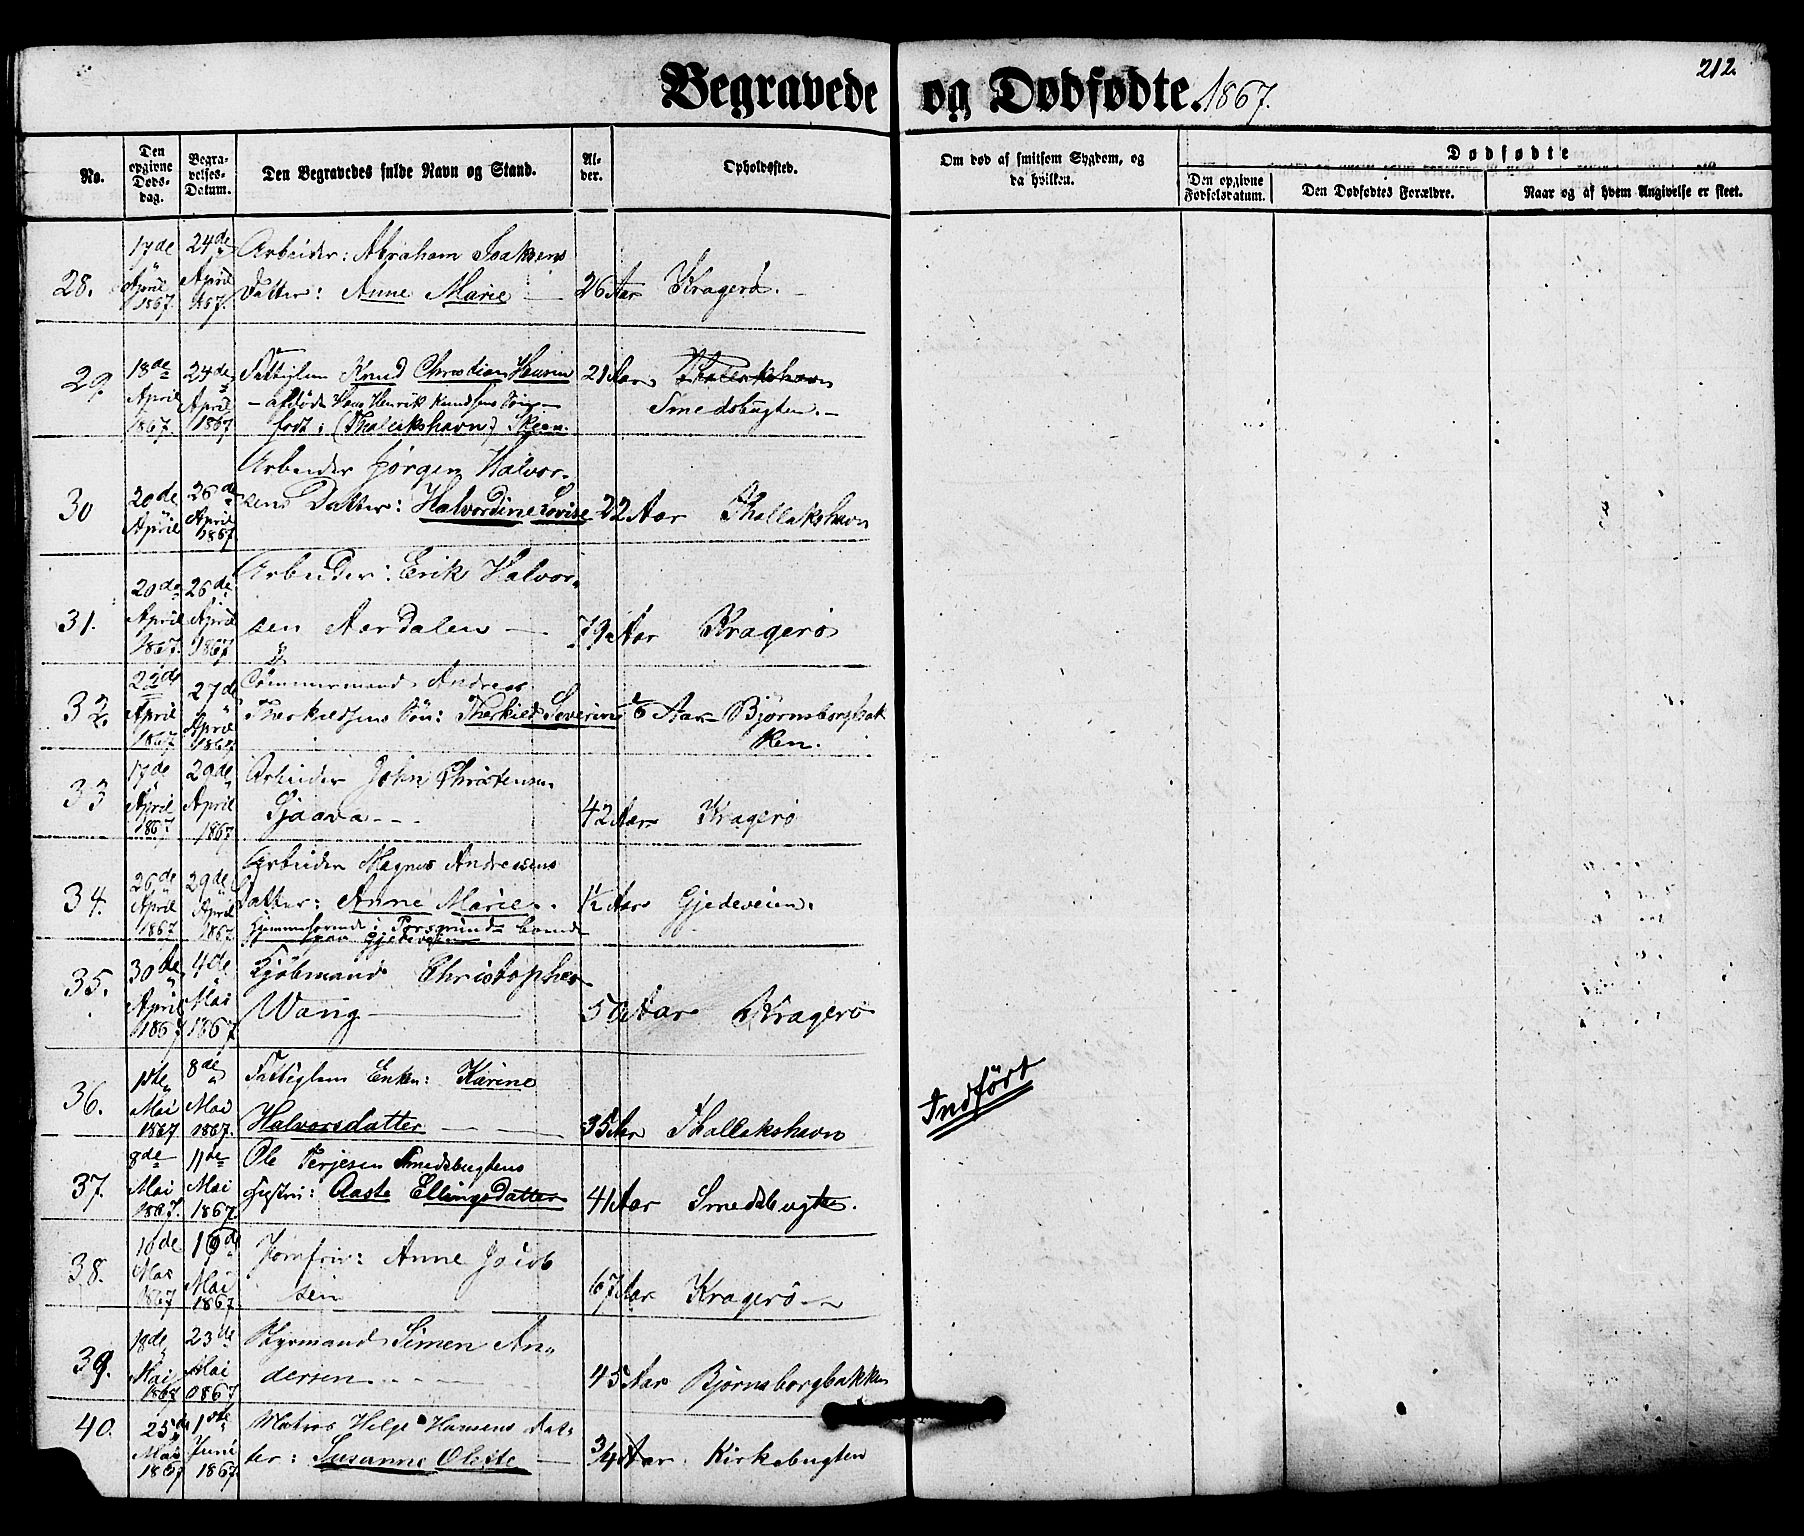 212.
Begravede og Dødfødte. 1867.
No.
Den opgivne Døds-dag.
Begra-velses-Datum.
Den Begravedes fulde Navn og Stand.
Al-der.
Opholdssted.
Om død af smitsom Sygdom, og da hvilken.
Dødfødte
Den opgivne Fødselsdatum.
Den Dødfødtes Forældre.
Naar og af hvem Angivelse er skeet.
28. 17de April 1867. 24de April 1867. Arbeider: Abraham Isaksens
Datter: Anne Marie — 26 Aar Kragerø. –
29. 18de April 1867. 24de April 1867 Fattiglem Knud Christian Hansen 21 Aar Thallakshavn
– afdøde Hans Henrik Knudsens Søn – Smedsbugten. –
født: (Thallakshavn) Skeen.
30 20de April 26de April 1867 Arbeider Jørgen Halvor-
sens Datter: Halvordine Lovise 22 Aar Thallakshavn
31. 20de April 1867. 26de April 1867 Arbeider: Erik Halvor-
sen Aardalen — 79 Aar Kragerø
32. 22de April 1867 27de April 1867 Tømmermand Andreas
Therkildsens Søn: Therkild Severin 6 Aar – Bjørnsborgbak
ken.
33 17de April 1867. 29de April 1867 Arbeider John Christensen
Sjaava - - - 42 Aar Kragerø
34. 26de April 1867 29de April 1867 Arbeider Magnus Andresens
Datter: Anne Marie. ½ Aar Gjedeveien.
Hjemmehørende i Porsgrund
Gjedeveien
35. 30de April 1867 4de Mai 1867 Kjøbmand Christopher
Wang — 50 Aar Kragerø
36. 1ste Mai 1867 8de Mai 1867. Fattiglem Enken: Karine
Halvorsdatter — 35 Aar Thallakshavn
Indført
37. 8de Mai 1867. 11de Mai 1867. Ole Terjesen Smedsbugtens
Hustru: Aaste Ellingsdatter 41 Aar Smedsbugten.
38. 10de Mai 1867 16de Mai 1867. Jomfru: Anne Jacob
sen 67 Aar Kragerø –
39. 18de Mai 1867 23de Mai 1867 Styrmand Simen An-
dersen – – – 45 Aar Bjørnsborgbakken
40. 25de Mai 1867 1ste Juni 1867 Matros Helge Hansens Dat-
ter: Susanne Oleste — 3/4 Aar. Kirkebugten